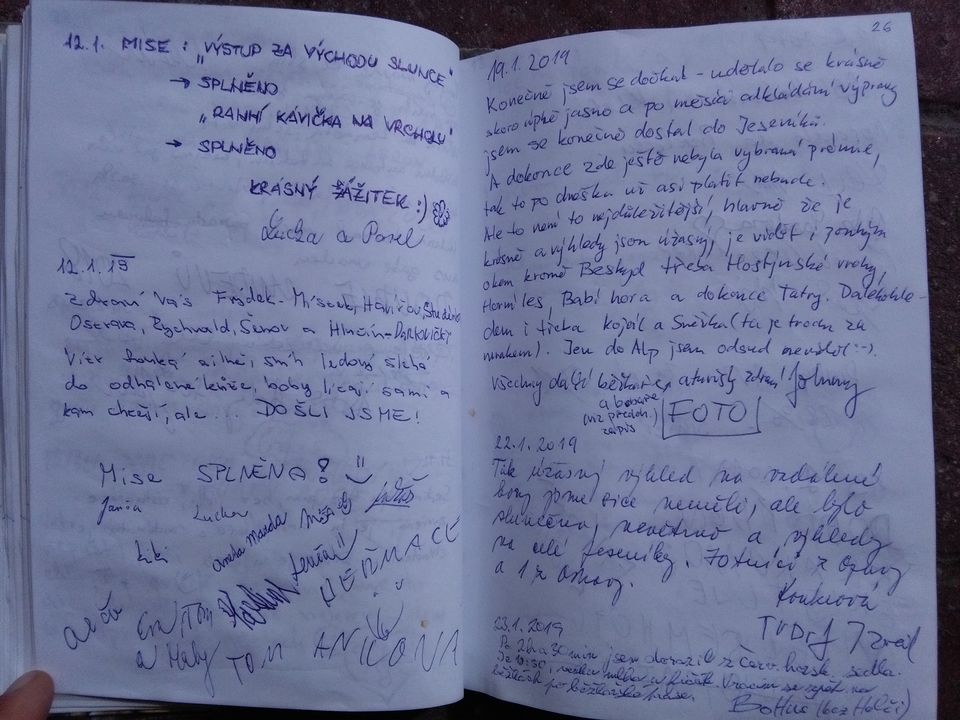 12.1. MISE: „VÝSTUP ZA VÝCHODU SLUNCE"
→ SPLNĚNO
„RANNÍ KÁVIČKA NA VRCHOLU"
→ SPLNĚNO
KRÁSNÝ ZÁŽITEK :)
Lucka a Pavel
12.1.19
Zdraví Vás Frýdek-Místek, Havířov,
Ostrava, Rychvald, Šenov a Hlučín-DARKOVIČKY
Vítr fouká silně, sníh ledový šlehá
do odhalené kůže, boby lítají sami a
kam chtějí, ale... DOŠLI JSME!
Mise SPLNĚNA!
Lucka
Kiki
HEŘMACE
Eva, Tom
a Maty
TOM
ANKONA
26
19.1.2019
Konečně jsem se dočkal - udělalo se krásně
skoro úplně jasno a po měsíci odkládání výpravy
jsem se konečně dostal do Jeseníků.
A dokonce zde ještě nebyla vybraná prémie,
tak to po dnešku už asi platit nebude.
Ale to není to nejdůležitější, hlavně že je
krásně a výhledy jsou úžasný, je vidět i pouhým
okem kromě Beskyd třeba Hostýnské vrchy,
Horní les, Babí hora a dokonce Tatry. Dalekohle-
dem i třeba Kojál a Sněžka (ta je trochu za
mrakem). Jen do Alp jsem odsud neviděl :-).
Všechny další běžkaře, a turisty zdraví Johnny
a bobaře
(viz předch.
zápis)
FOTO
22.1.2019
Tak úžasný výhled na vzdálené
hory jsme sice neměli, ale bylo
slunečno, nevětrno a výhledy
na celé Jeseníky. 7 z Opavy
a 1 z Ostravy.
23.1.2019
Po 2h a 30 min jsem dorazil z Červ. horsk. sedla.
Je 10:30, Vracím se zpět na
běžkách po